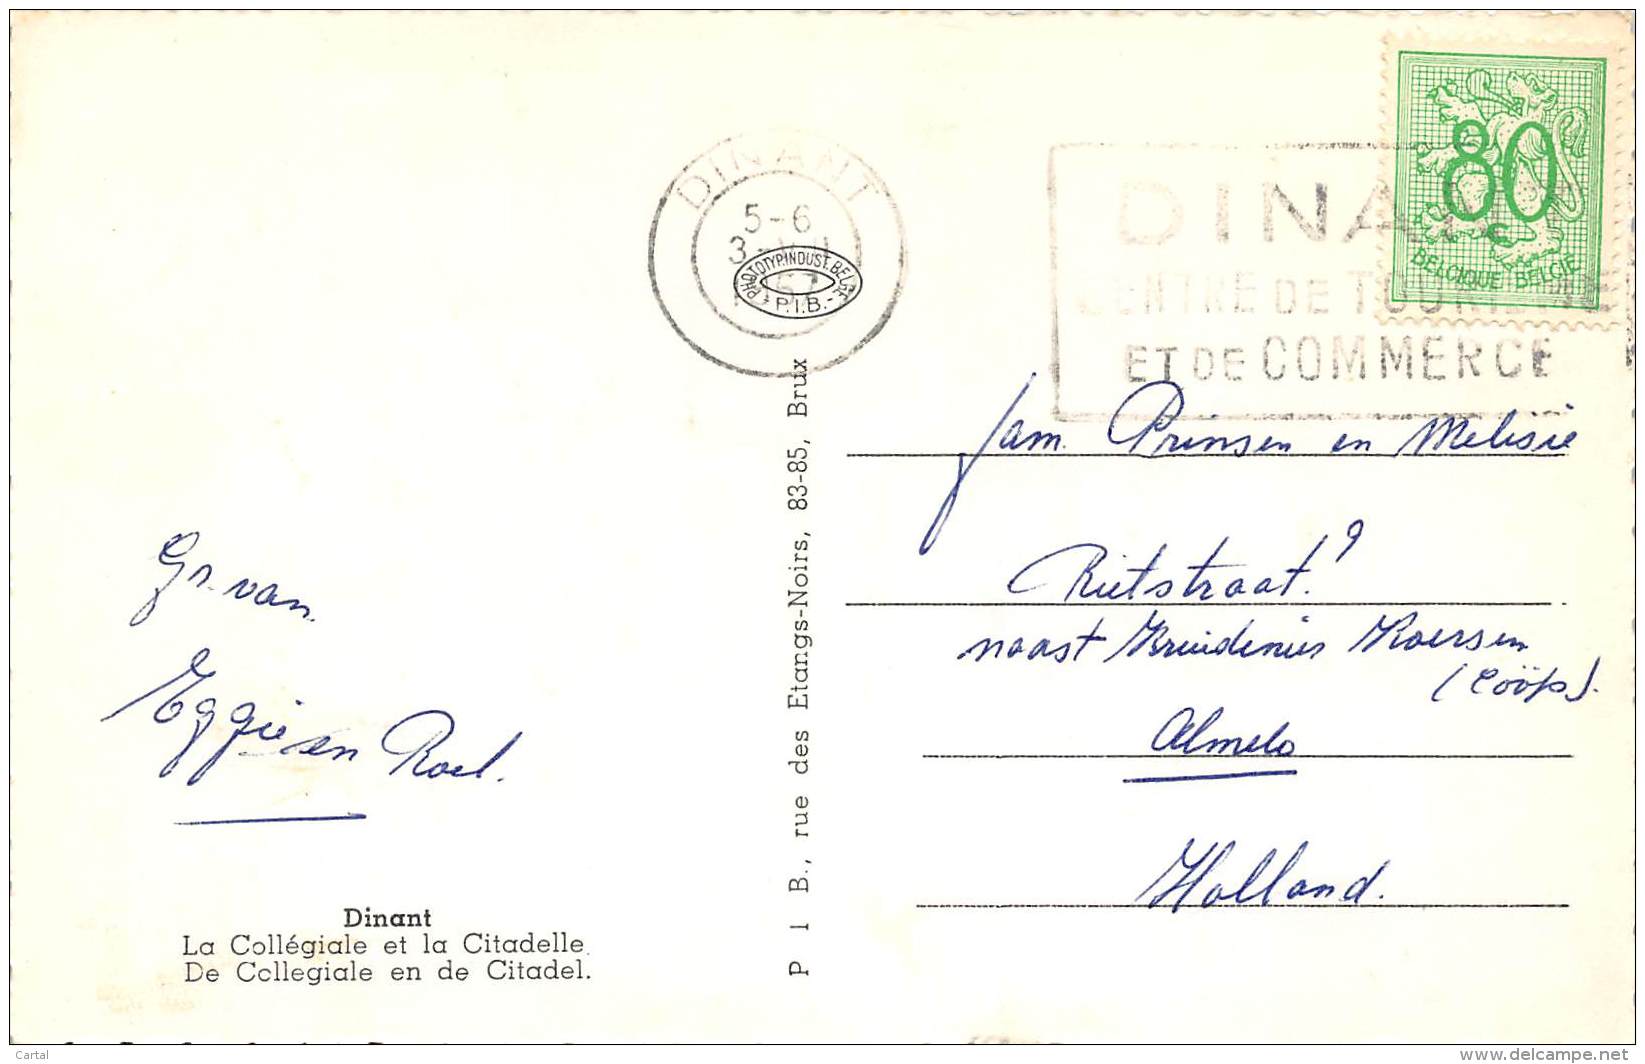 DINANT
5-6
PHOTOTYP.INDUST.BELGE
- P.I.B. -
DINANT
CENTRE DE TOURISME
ET DE COMMERCE
80
BELGIQUE BELGIË
P I B., rue des Etangs-Noirs, 83-85, Brux
Fam. Prinsen en Melisie
Rietstraat 9
naast Kruidenier Koersen
(Coöp).
Almelo
Holland.
Gr. van
Eggie en Roel.
Dinant
La Collégiale et la Citadelle.
De Collegiale en de Citadel.
Cartal
www.delcampe.net